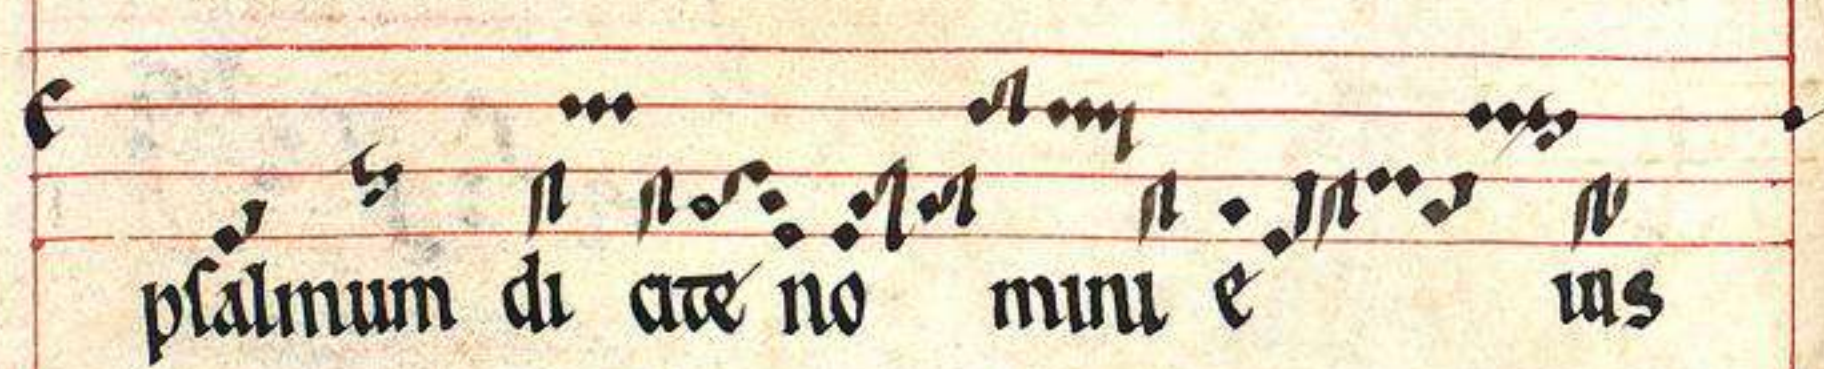 pſalmum di cite no mini e ius